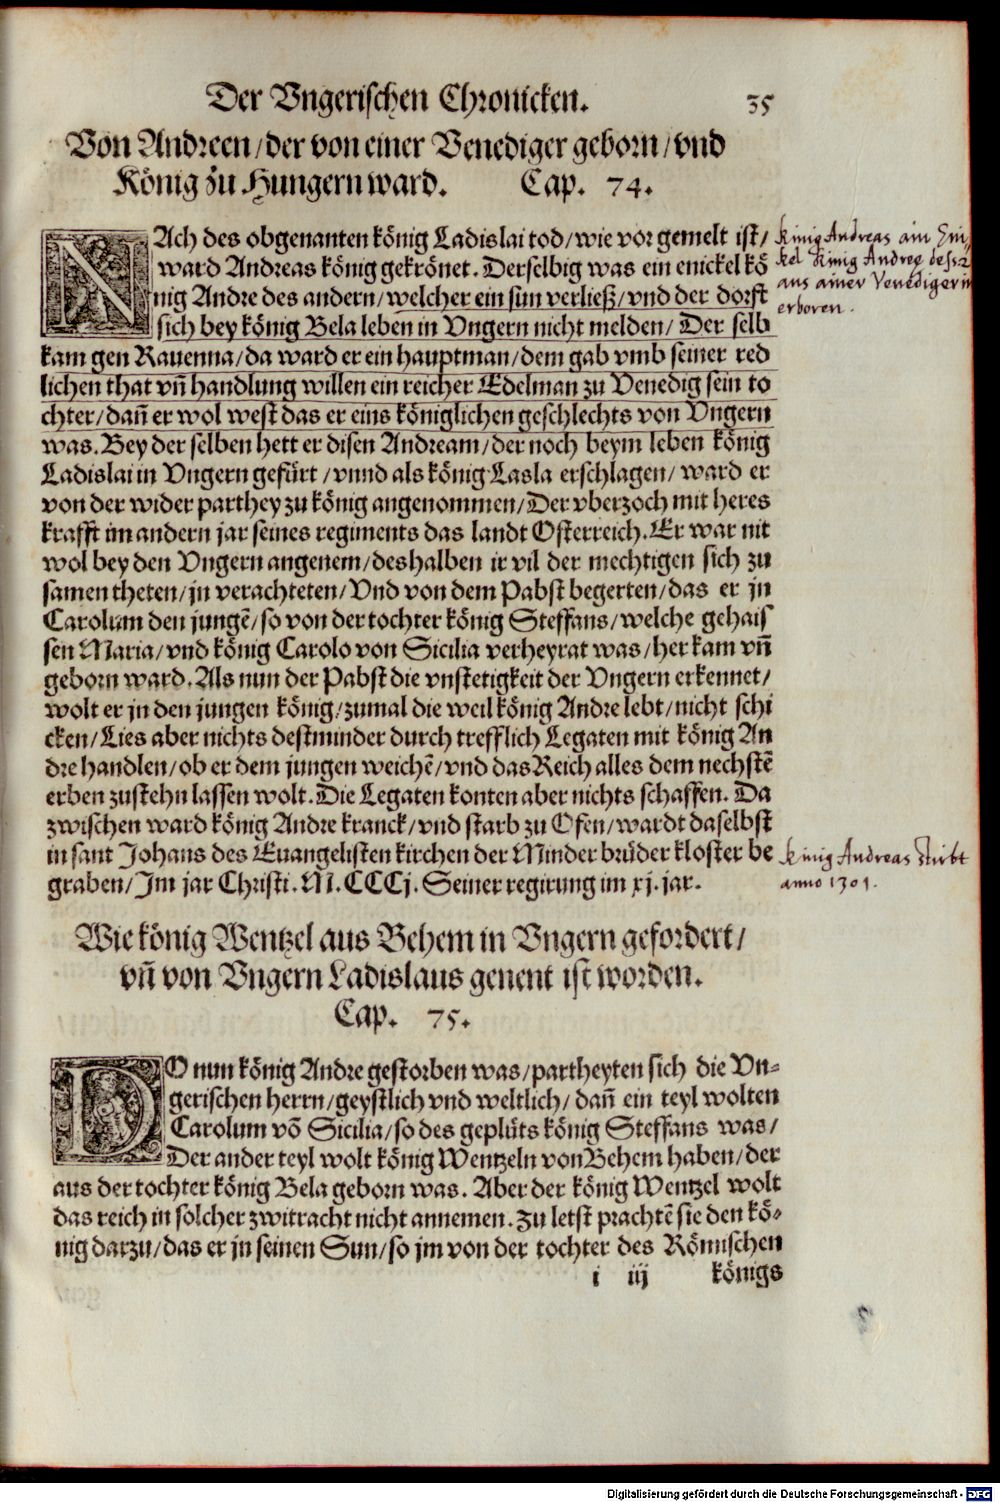 Der Vngerischen Chronicken. 35
Von Andreen/der von einer Venediger geborn/vnd
König zu Hungern ward. Cap. 74.
NAch des obgenanten könig Ladislai tod/wie vor gemelt ist/
ward Andreas könig gekrönet. Derselbig was ein enickel kö
nig Andre des andern/welcher ein sun verließ/vnd der dorfft
sich bey könig Bela leben in Vngern nicht melden/ Der selb
kam gen Rauenna/da ward er ein hauptman/dem gab vmb seiner red
lichen that vñ handlung willen ein reicher Edelman zu Venedig sein to
chter/dañ er wol west das er eins königlichen geschlechts von Vngern
was. Bey der selben hett er disen Andream/der noch beym leben könig
Ladislai in Vngern gefürt/vnnd als könig Lasla erschlagen/ward er
von der wider parthey zu könig angenommen/Der vberzoch mit heres
krafft im andern jar seines regiments das landt Osterreich. Er war nit
wol bey den Vngern angenem/deshalben ir vil der mechtigen sich zu
samen theten/jn verachteten/Vnd von dem Pabst begerten/das er jn
Carolum den jungē/so von der tochter könig Steffans/welche gehais
sen Maria/vnd könig Carolo von Sicilia verheyrat was/her kam vñ
geborn ward. Als nun der Pabst die vnstetigkeit der Vngern erkennet/
wolt er jn den jungen könig/zumal die weil könig Andre lebt/nicht schi
cken/Lies aber nichts destminder durch trefflich Legaten mit könig An
dre handlen/ob er dem jungen weichē/vnd das Reich alles dem nechstē
erben zustehn lassen wolt. Die Legaten konten aber nichts schaffen. Da
zwischen ward könig Andre kranck/vnd starb zu Ofen/wardt daselbst
in sant Johans des Euangelisten kirchen der Minder brüder kloster be
graben/Im jar Christi. M. CCCj. Seiner regirung im xj. jar.
König Andreas ain Eni
kel König Andree dess 2
aus ainer Venedigerin
erboren.
König Andreas stirbt
anno 1301.
Wie könig Wentzel aus Behem in Vngern gefordert/
vñ von Vngern Ladislaus genent ist worden.
Cap. 75.
DO nun könig Andre gestorben was/partheyten sich die Vn-
gerischen herrn/geystlich vnd weltlich/dañ ein teyl wolten
Carolum vō Sicilia/so des geplüts könig Steffans was/
Der ander teyl wolt könig Wentzeln von Behem haben/der
aus der tochter könig Bela geborn was. Aber der könig Wentzel wolt
das reich in solcher zwitracht nicht annemen. Zu letst prachtē sie den kö-
nig darzu/das er jn seinen Sun/so jm von der tochter des Römischen
i iij königs
Digitalisierung gefördert durch die Deutsche Forschungsgemeinschaft - DFG